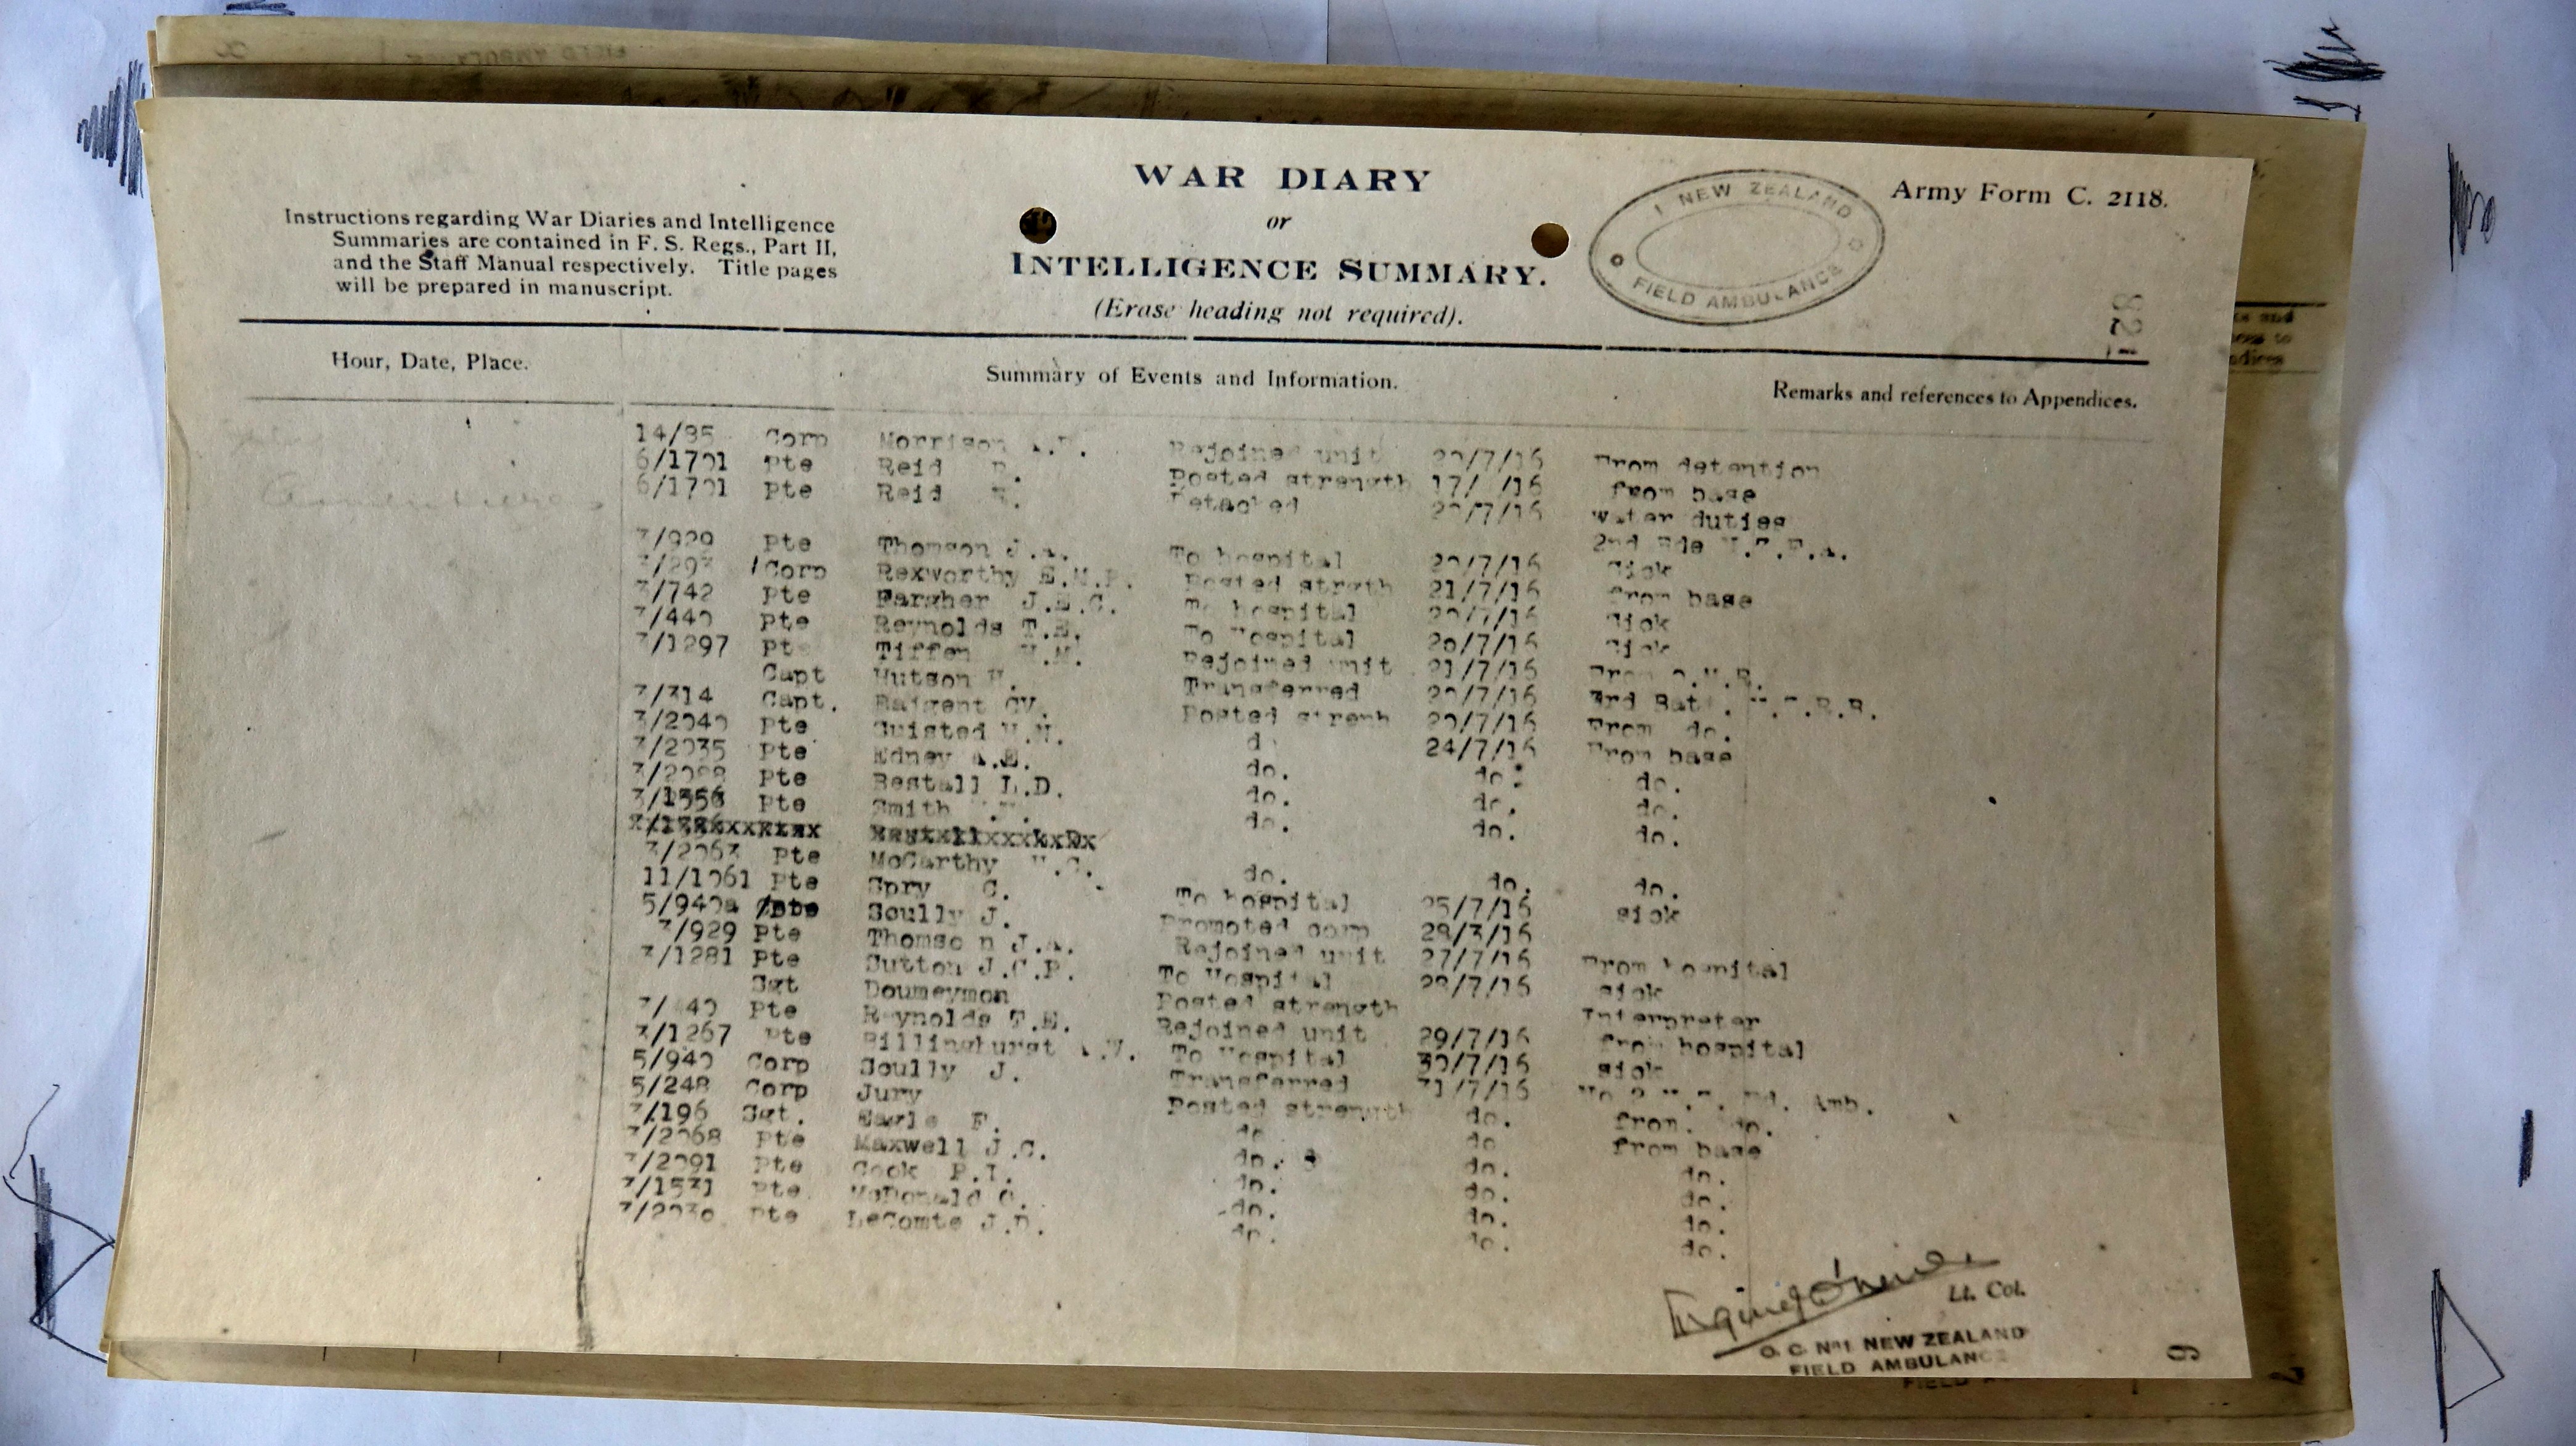 WAR DIARY
or
INTELLIGENCE SUMMARY.
(Erase heading not required).
Instructions regarding War Diaries and Intelligence
Summaries are contained in F. S. Regs., Part II,
and the Staff Manual respectively. Title pages
will be prepared in manuscript.
1 NEW ZEALAND
FIELD AMBULANCE
Army Form C. 2118.
821
Hour, Date, Place. Summary of Events and Information. Remarks and references to Appendices.
Corp Morrison Rejoined unit 20/7/16 From detention
6/1701 Pte Reid Posted strength 17/ /16 from base
6/1701 Pte Reid Detached 20/7/16 water duties
2nd Bde N.Z.F.A.
3/929 Pte Thomson J.A. To hospital 20/7/16 Sick
3/293 Corp Rexworthy Posted strgth 21/7/16 From base
3/742 Pte Fargher J.E.C. To hospital 20/7/16 Sick
3/440 Pte Reynolds T.E. To Hospital 20/7/16 Sick
3/1297 Pt Tiffen Rejoined unit 21/7/16
Capt Hutson Transferred 20/7/16 3rd Batt. N.Z.R.B.
3/314 Capt. Baigent Posted strenh 20/7/16 From do.
3/2040 Pte Guisted 24/7/16 From base
3/2035 Pte Edney A.E. do. do. do.
Pte Bestall L.D. do. do. do.
Pte Smith do. do. do.
3/2063 Pte McCarthy do. do. do.
11/1061 Pte Spry C. To hospital 25/7/16 sick
5/940a Scully J. Promoted corp 28/3/16
3/929 Pte Thomso n J.A. Rejoined unit 27/7/16 From hospital
3/1281 Pte Sutton J.C.P. To Hospital 28/7/16 sick
Sgt Doumeymon Posted strength Interpreter
3/ 40 Pte Reynolds T.E. Rejoined unit 29/7/16 from hospital
3/1267 Pte Billinghurst To Hospital 30/7/16 sick
5/940 Corp Scully J. Transferred 31/7/16 No 2 N.Z. Fd. Amb.
5/248 Corp Jury Posted strength do. from. do.
3/196 Sgt. Eagle F. do do from base
3/2068 Pte Maxwell J.C. do. do. do.
3/2091 Pte Cook P.I. do. do. do.
3/1531 Pte McDonald C. do. do. do.
Pte LeComte J.D. do. do. do.
Lt. Col.
O. C. No 1 NEW ZEALAND
FIELD AMBULANCE
6
7